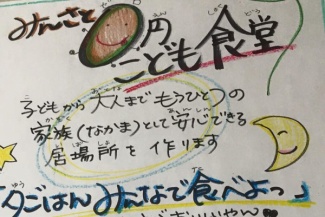 みんさと0円こども食堂
子どもから大人までもうひとつの
家族(なかま)として安心できる
居場所を作ります
「夕ごはんみんなで食べよっ」